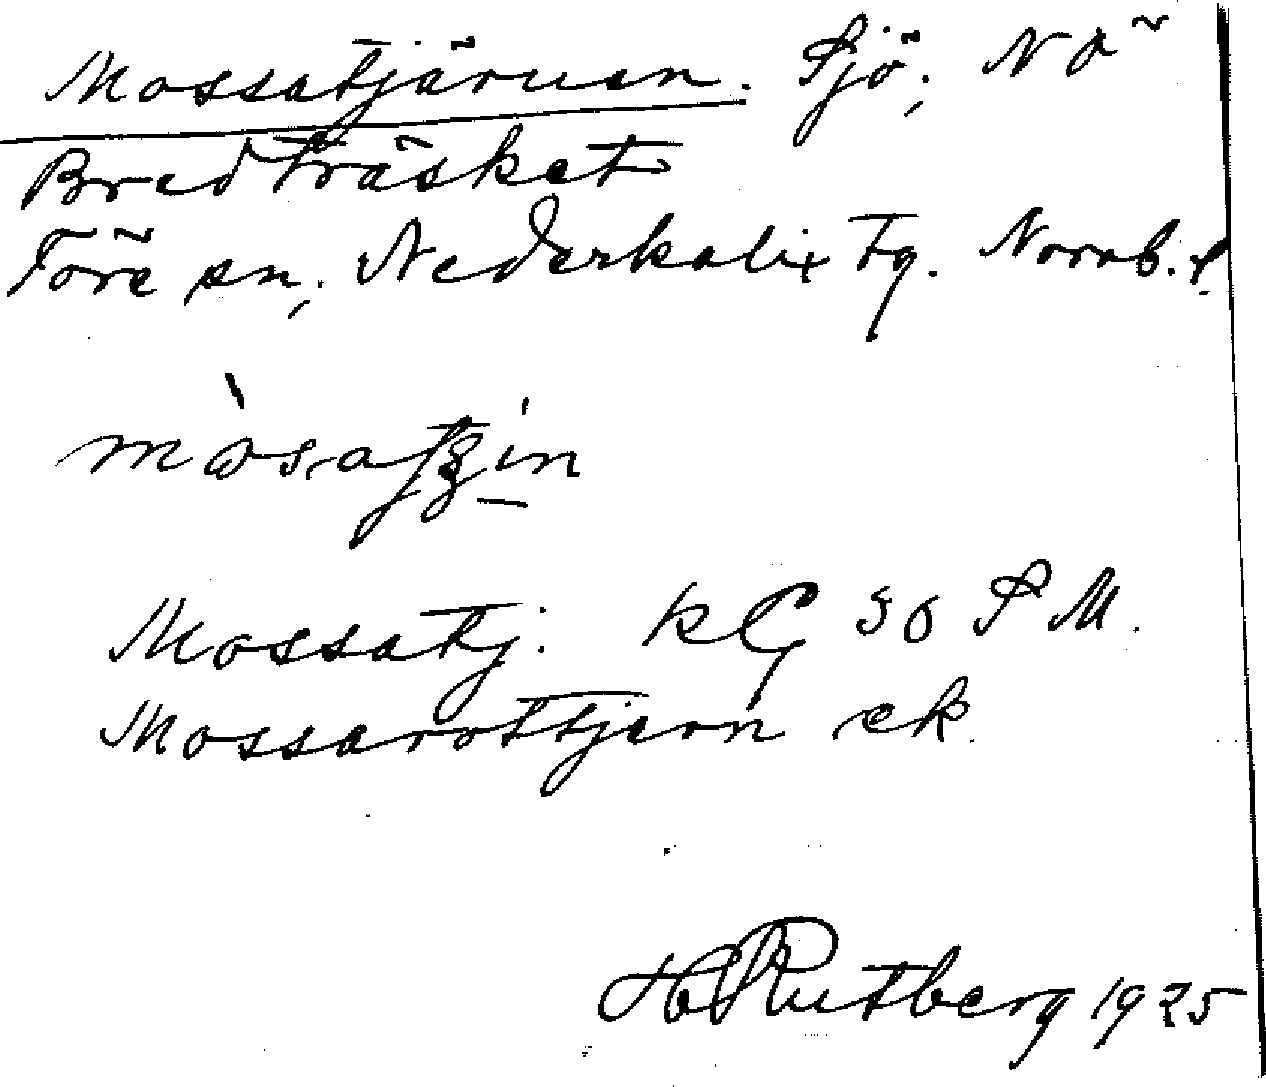 Mossatjärnen. Sjö; NÖ
Bredträsket
Töre sn; Nederkalix tg. Norrb. l.
Mossatj. kG 30 SM.
Mossarottjern ek.
H Rutberg 1925